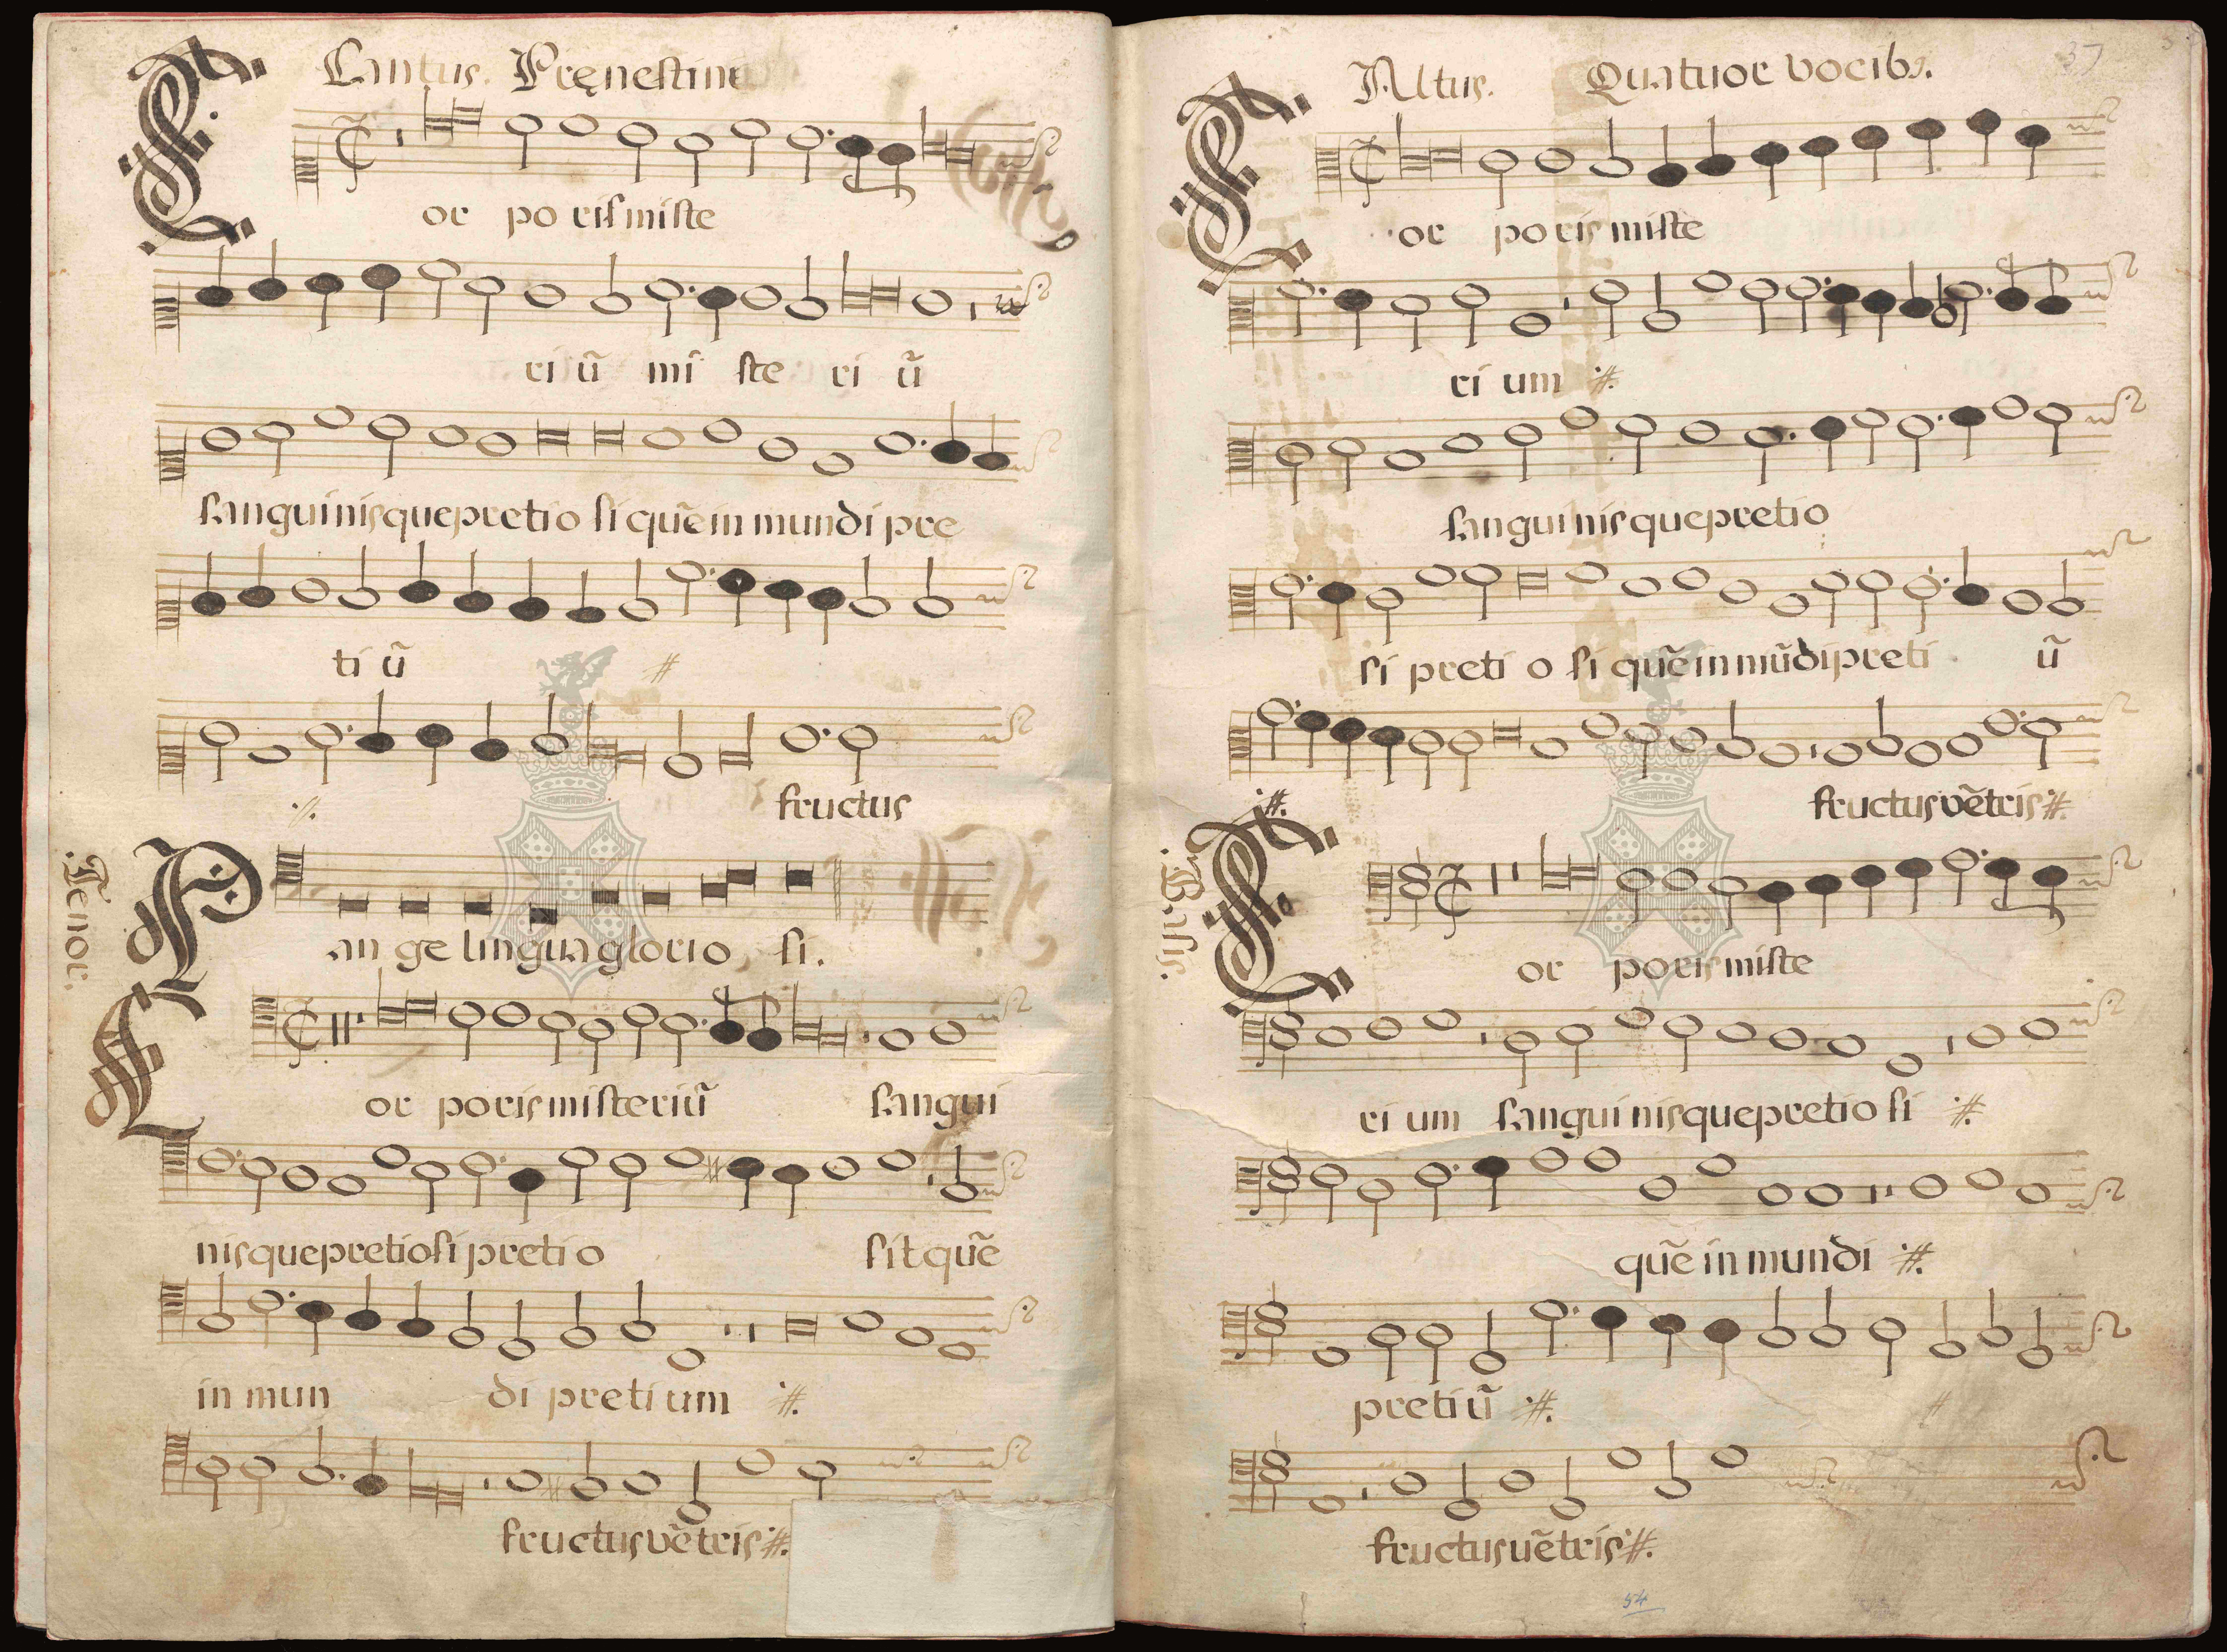 Cantus. Pręnestine
or po ris miste
ri ũ mi ste ri ũ
sanguinisque pretio si quẽ in mundi pre
ti ũ :#.
:#. fructus
Tenor.
Pan ge lingua glorio si.
Cor poris misteriũ sangui
nisque pretiosi pretio sit quẽ
in mun di preti um :#.
fructus vẽtris :#.
37
Altus. Quatuor vocibꝫ.
Cor poris miste
ri um :#.
sanguinisque pretio
si preti o si quẽ in mũdi preti ũ
:#. fructus vẽtris :#.
Basis.
Cor poris miste
ri um sanguinisque pretio si :#.
quẽ in mundi :#.
preti ũ :#.
fructus uẽtris :#.
54